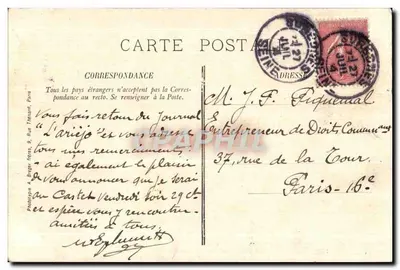 CARTE POSTALE
CORRESPONDANCE
ADRESSE
Tous les pays étrangers n'acceptent pas la Corres-
pondance au recto. Se renseigner à la Poste.
Vous fais retour du Journal
"L'ariéjo" et vous adresse
tous mes remerciements,
ai également le plaisir
de vous annoncer que je serai
au Castet Vendredi soir 29 ct
et espère vous y rencontrer.
amitiés à tous,
M. J. F. Piquemal
Entrepreneur de Droits Communaux
37, rue de la Tour
Paris-16e
SEINE
27
JUIL